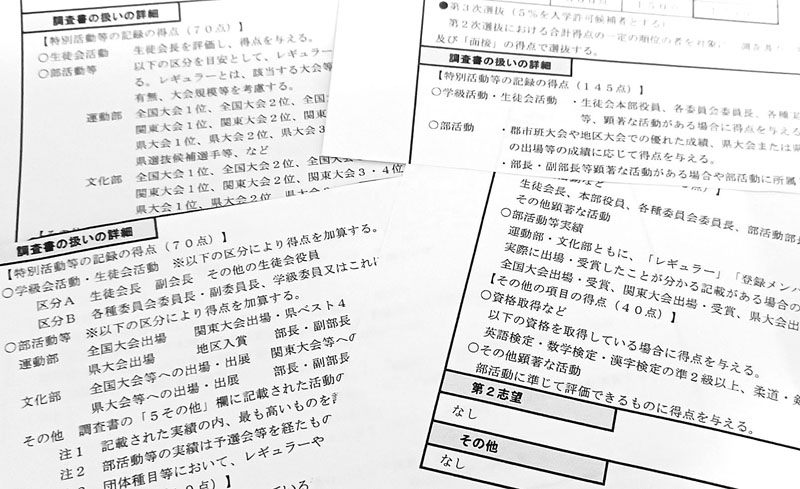 調査書の扱いの詳細
【特別活動等の記録の得点（７０点）】
○生徒会活動　生徒会長を評価し、得点を与える。
○部活動等　以下の区分を目安として、レギュラー
る。レギュラーとは、該当する大会等
有無、大会規模等を考慮する。
運動部　全国大会１位、全国大会２位、全国
関東大会１位、関東大会２位、関
県大会１位、県大会２位、県大会３
県選抜候補選手等、など
文化部　全国大会１位、全国大会２位、全
関東大会１位、関東大会２位、関東大会３・４位
県大会１位、県大会２位、県大会
●第３次選抜（５％を入学許可候補者とする）
第２次選抜における合計得点の一定の順位の者を対象に、調査書
及び「面接」の得点で選抜する。
調査書の扱いの詳細
【特別活動等の記録の得点（１４５点）】
○学級活動・生徒会活動　・生徒会本部役員、各委員会委員長、各種
等、顕著な活動がある場合に得点を与える
○部活動　・郡市班大会や地区大会での優れた成績、県大会または
の出場等の成績に応じて得点を与える。
・部長・副部長等顕著な活動がある場合や部活動に所属
調査書の扱いの詳細
【特別活動等の記録の得点（７０点）】
○学級活動・生徒会活動　※以下の区分により得点を加算する。
区分Ａ　生徒会長　副会長　その他の生徒会役員
区分Ｂ　各種委員会委員長・副委員長、学級委員又はこれに
○部活動等　※以下の区分により得点を加算する。
運動部　全国大会出場　関東大会出場・県ベスト４
県大会出場　地区入賞　部長・副部長
文化部　全国大会等への出場・出展　関東大会等への
県大会等への出場・出展　部長・副部長
その他　調査書の「５その他」欄に記載された活動の
注１　記載された実績の内、最も高いものを
注２　部活動等の実績は予選会等を経たもの
団体種目等において、レギュラーや
生徒会長、本部役員、各種委員会委員長、部活動部長
その他顕著な活動
○部活動等実績
運動部・文化部ともに、「レギュラー」「登録メンバ
実際に出場・受賞したことが分かる記載がある場合の
全国大会出場・受賞、関東大会出場・受賞、県大会出
【その他の項目の得点（４０点）】
○資格取得など
以下の資格を取得している場合に得点を与える。
英語検定・数学検定・漢字検定の準２級以上、柔道・剣
○その他顕著な活動
部活動に準じて評価できるものに得点を与える。
第２志望
なし
その他
なし